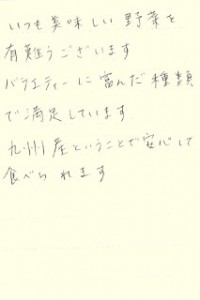 いつも美味しい野菜を
有難うございます
バラエティーに富んだ種類
で満足しています
九州産ということで安心して
食べられます